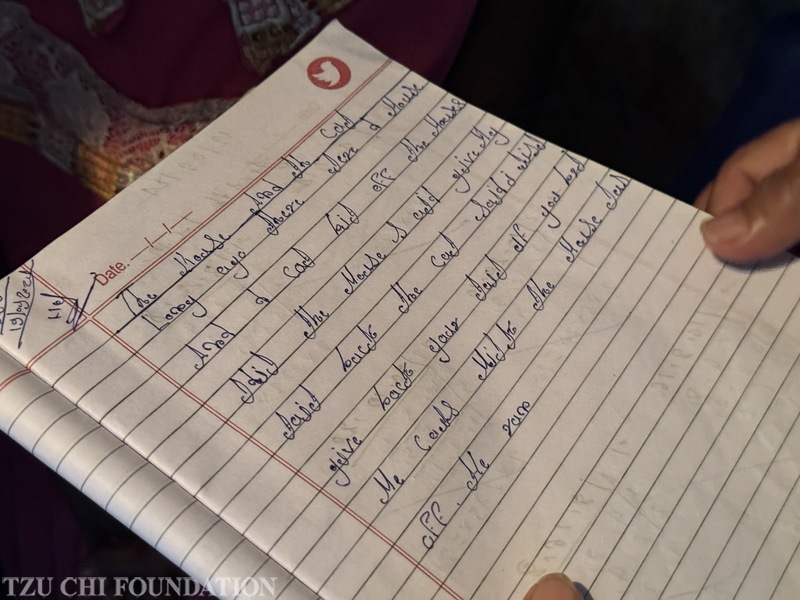 Date.
The Mouse And the Cat
Long ago there were a Mouse
And a Cat bit off the Mouse
tail the Mouse s aid give My
tail back the Cat said i will
give back your tail if you
Me Cow's Milk the Mouse
off. He ran
TZU CHI FOUNDATION